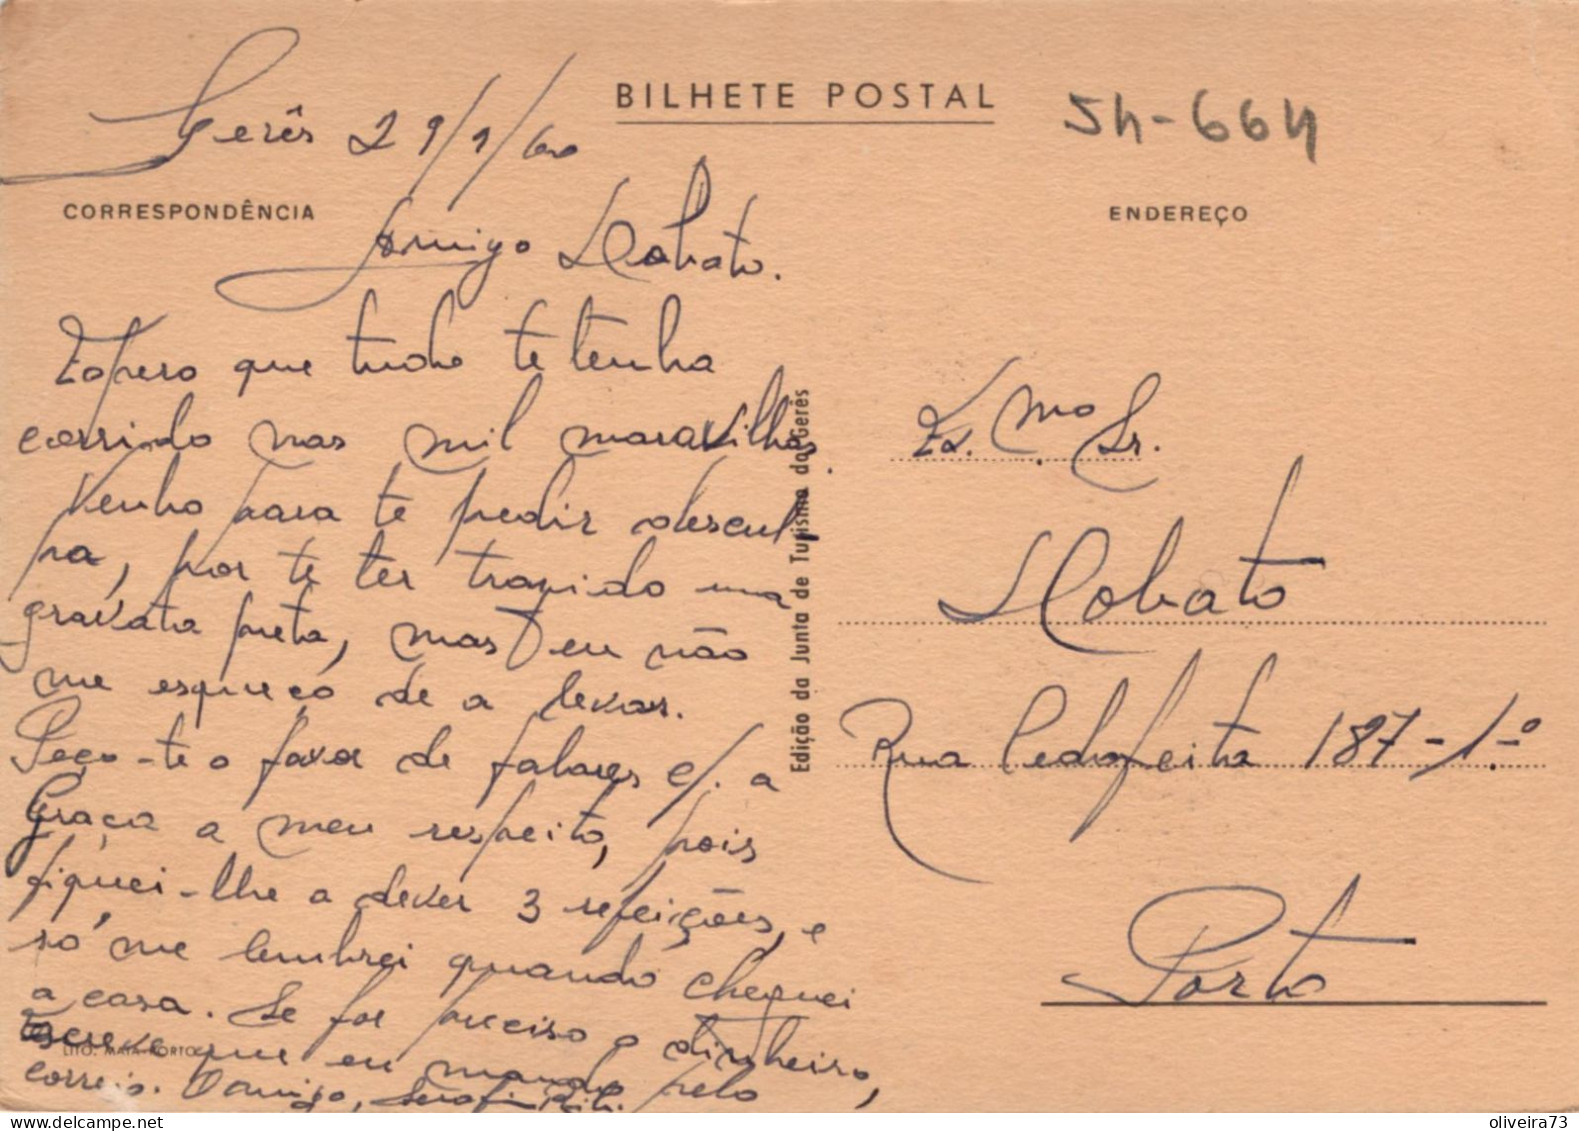 BILHETE POSTAL
54-664
Gerês 29/9/60
CORRESPONDÊNCIA
ENDEREÇO
Amigo Lobato.
Espero que tudo te tenha
corrido nas mil maravilhas.
Venho para te pedir descul
pa, por te ter trazido uma
gravata preta, mas eu não
me esqueço de a levar.
Peço-te o favor de falares c/. a
Graça a meu respeito, pois
fiquei-lhe a dever 3 refeições, e
só me lembrei quando cheguei
a casa. Se for preciso o dinheiro,
escreve que eu mando pelo
correio. O amigo, Serafim
LITO. MAIA-PORTO
Edição da Junta de Turismo do Gerês
Ex.mo Sr.
Lobato
Rua Pedrofeita 187-1.º
Porto
delcampe.net
oliveira73